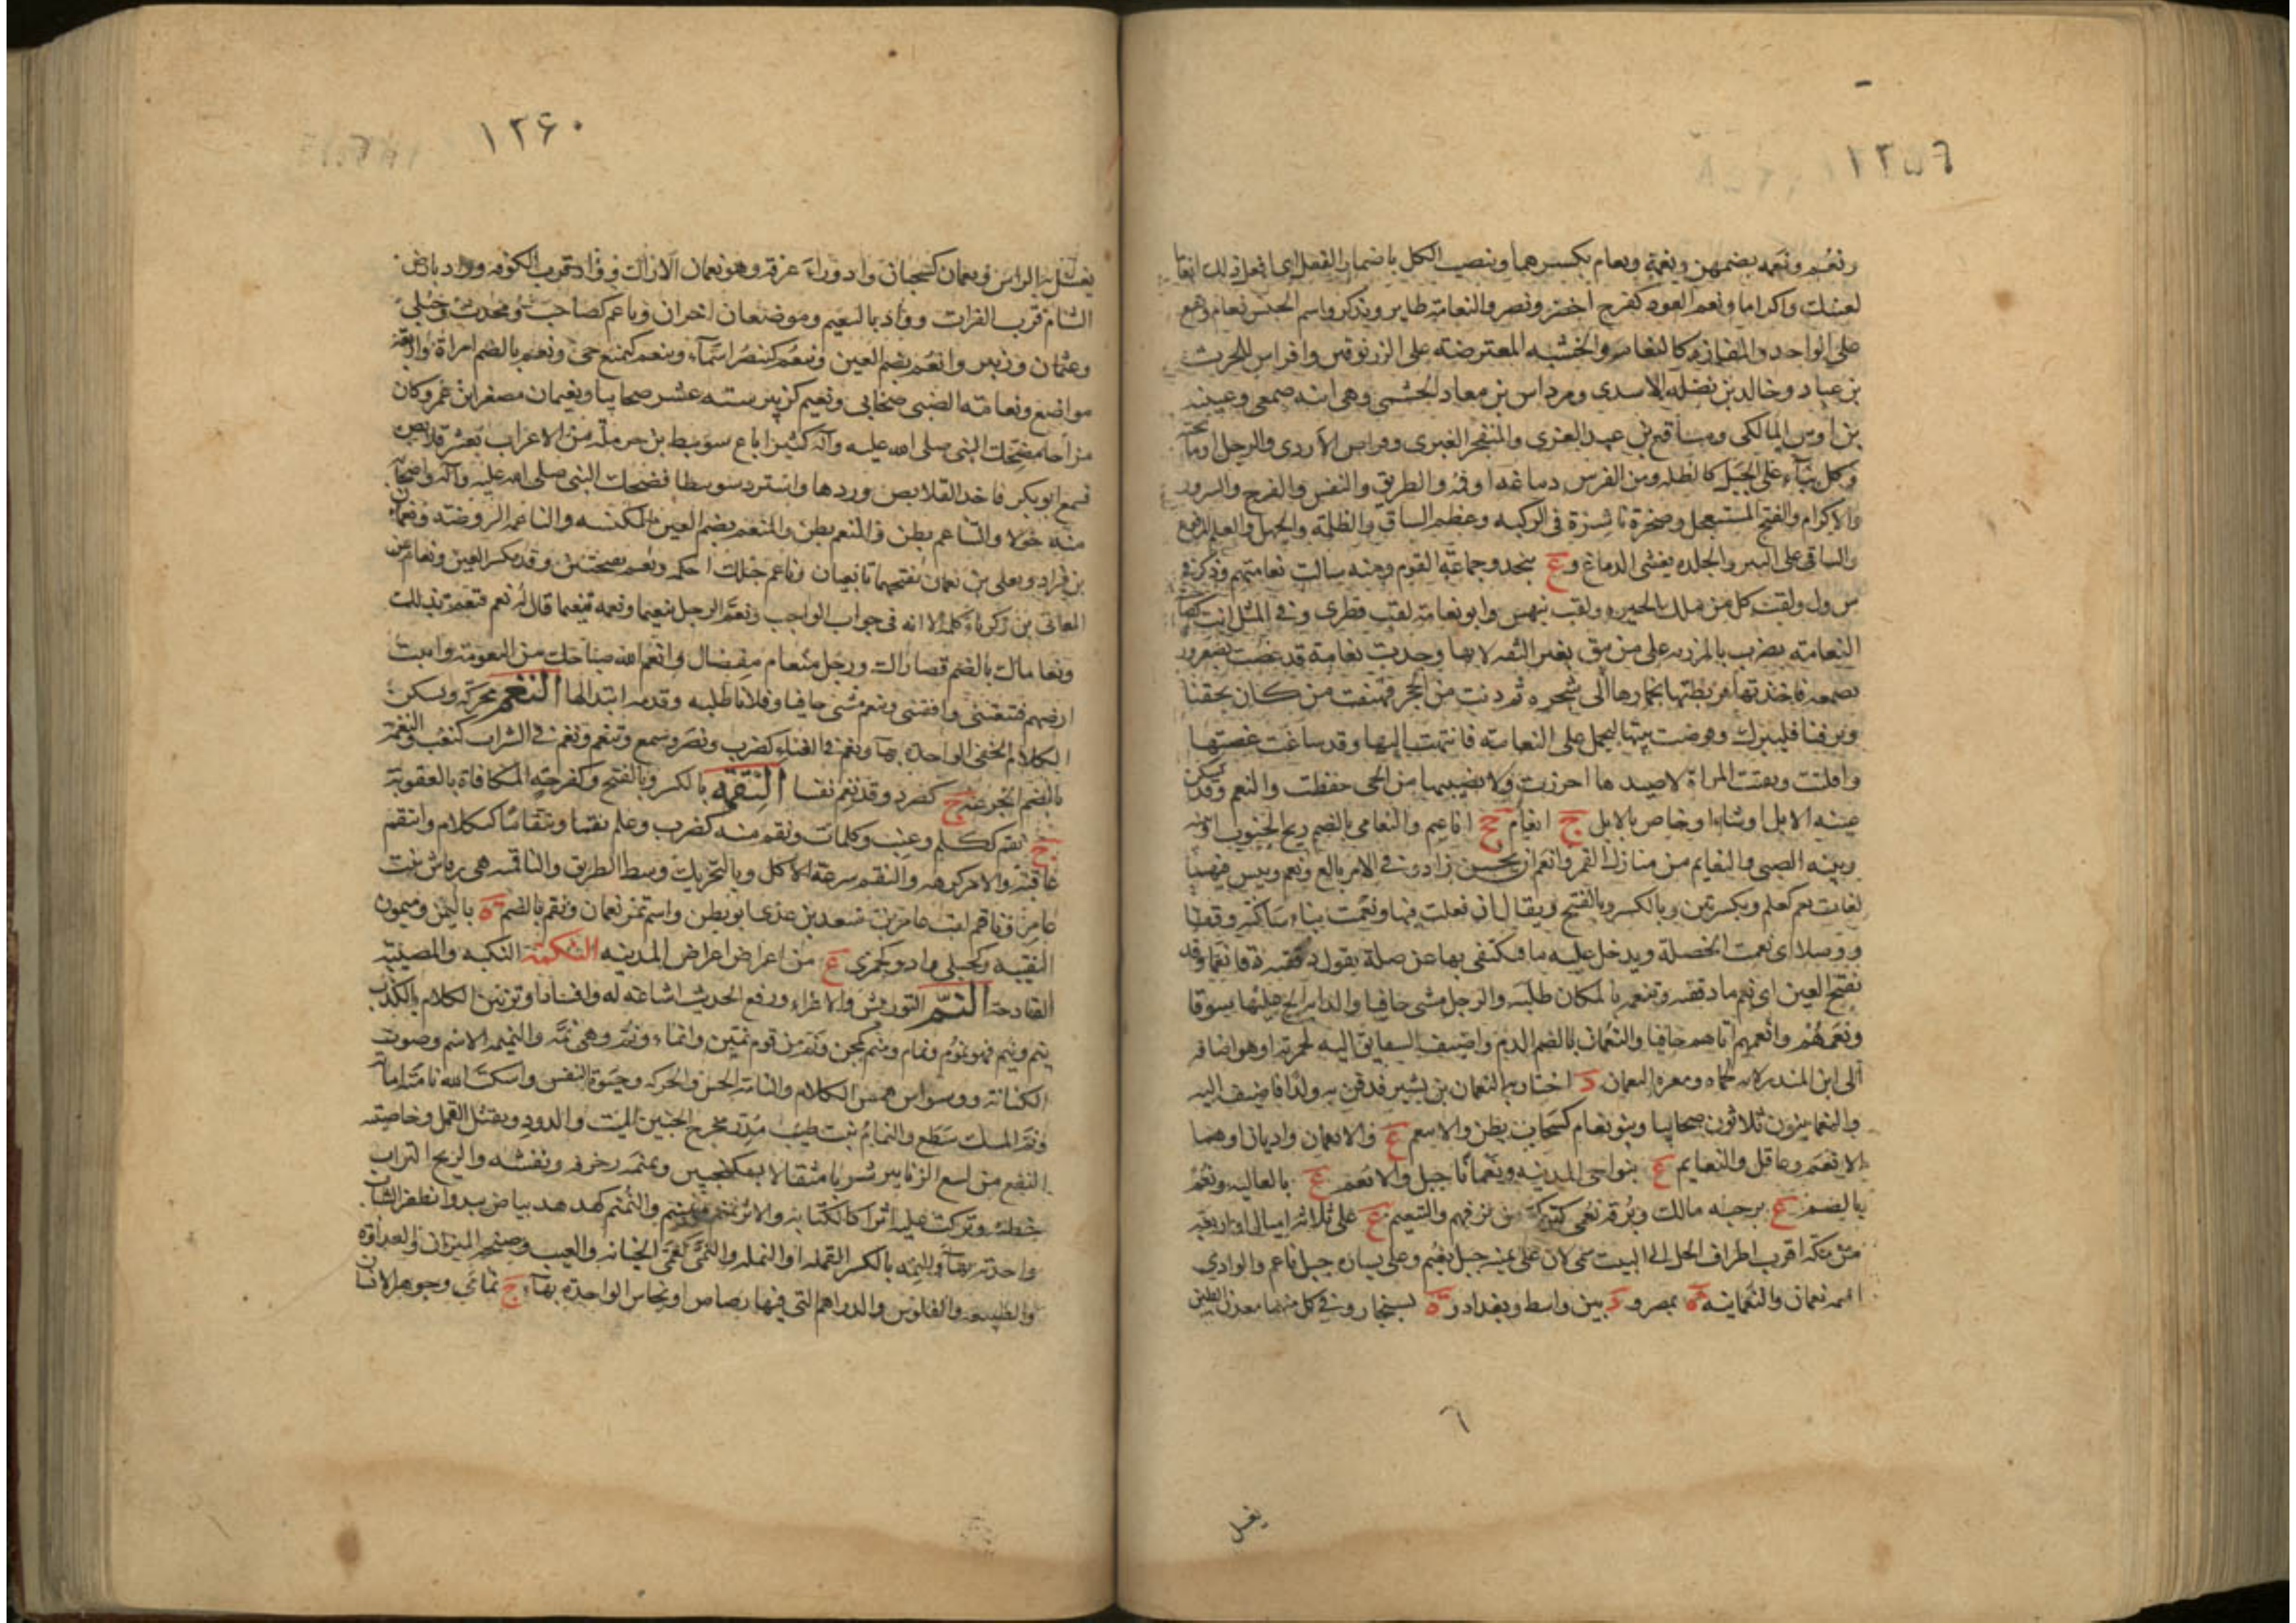 ١٢٥٦
ونعم ونعمة بضمهن ونعمة ونعام بكسرهما وينصب الكل باضمار الفعل اى افعل ذلك انعاما
لعينك واكراما ونعم العود كفرح اخضر ونضر والنعامة طاير ويذكر واسم الجنس نعام وقع
على الواحد والمفازة كالنعام والخشبه المعترضة على الزرنوقين وافراس للحرث
بن عباد وخالد بن نضلة الاسدى ومرداس بن معاد الجشمى وهى ابنه صمعى وعيينه
بن اوس المالكى ومسافع بن عبد العزى والمنفجر الغبرى وقراص الازدى والرجل او ما تحته
وكل بناء على الجبل كالظله ومن الفرس دماغه او فمه والطريق والنفس والفرح والسرور
والاكرام والفيج المستعجل وصخرة ناشزة فى الركيه وعظم الساق والظلمة والجهل والعلم المرفوع
والساقى على البير والجلده يغشى الدماغ وع بنجد وجماعة القوم ومنه سالت نعامتهم وذكر فى
س ول ولقب كل من ملك الحيره ولقب بيهس وابو نعامة لقب قطرى وفى المثل انت كصاحبة
النعامة يضرب بالمزريه على من يثق بغير الثقه لانها وجدت نعامة قد غصت بصعرور
بصمغه فاخذتها فربطتها بخمارها الى شجره ثم دنت من الحى فهتفت من كان يحفنا
ويرفنا فليترك وقوضت بيتها لتحمل على النعامة فانتهت اليها وقد ساغت غصتها
وافلتت وبقيت المراة لا صيدها احرزت ولا نصيبها من الحى حفظت والنعم وقد يسكن
عينه الابل او شاء او خاص بالابل ج انعام جج اناعيم والنعامى بالضم ريح الجنوب او بينه
وبين الصبى والنعايم من منازل القمر وانعم ان يحسن زاد وفى الامر بالغ ونعم وبيس فيهما
لغات نعم كعلم وبكسرتين وبالكسر وبالفتح ويقال ان فعلت فبها ونعمت بتاء ساكنه وقفا
ووصلا اى نعمت الخصلة ويدخل عليه ما فيكتفى بها عن صلة يقول دققته دقا نعما وقد
تفتح العين اى نعم ما دققته وتنعمه بالمكان طلبه والرجل مشى حافيا والدابة الح عليها سوقا
ونعمهم وانعمهم اتاهم حافيا والنعمان بالضم الدم واضيف الشقايق اليه لحمرته او هو اضافه
الى ابن المنذر لانه حماه ومعره النعمان د اجتاز به النعمان بن بشير فدفن به ولدا فاضيف اليه
والنعمانيون ثلاثون صحابيا وبنو نعام كسحاب بطن والانعم ع والانعمان واديان او هما
الانعم وعاقل والنعايم ع بنواحى المدينه ونعمايا جبل والانعم ع بالعاليه ونعم
بالضم ع برحبه مالك وبرقة نعمى كتركى من برقهم والتنعيم ع على ثلاثة اميال او اربعه
من مكة اقرب اطراف الحل الى البيت سمى لان على يمينه جبل نعيم وعلى يساره جبل ناعم والوادى
اسمه نعمان والنعمانيه ة بمصر ود بين واسط وبغداد وة بسنجار وفى كل منهما معدن الطين
٦
يغسل
١٢٦٠
يغسل به الراس ونعمان كسحبان واد وراء عرفة وهو نعمان الاراك وواد قرب الكوفه وواد بارض
الشام قرب الفرات وواد بالتنعيم وموضعان اخران وناعم كصاحب ومحدث وحبلى
وعثمان وزبير وانعم بضم العين وتنعم كتنصر اسماء وينعم كيمنع حى ونعم بالضم امراة واربعة
مواضع ونعامة الضبى صحابى ونعيم كزبير سته عشر صحابيا ونعيمان مصغر ابن عمرو كان
مزاحا يضحك النبى صلى الله عليه وآله كثيرا باع سويبط بن حرملة من الاعراب بعشر قلايص
فسمع ابوبكر فاخذ القلايص وردها واسترد سويبطا فضحك النبى صلى الله عليه وآله واصحابه
منه حولا والناعم بطن والمنعم بطن والمنعم بضم العين المكنسه والناعمه الروضة ونعمان
بن قراد ويعلى بن نعمان بفتحهما تابعيان وناعم جبلك احكمه ونعم بفتحتين وقد يكسر العين ونعام عن
المعافى بن زكريا كلمة الا انه فى جواب الواجب ونعم الرجل تنعيما ونعمه تنعيما قال له نعم فتنعم بذلك
ونعاماك بالضم قصاراك ورجل منعام مفضال وانعم الله صباحك من النعومة واتيت
ارضهم فتنعمتنى وافقتنى وتنعم مشى حافيا وفلانا طلبه وقدمه ابتدالها النغم محركة ويسكن
الكلام الخفى الواحدة بهاء ونغم فى الغناء كضرب ونصر وسمع وتنغم ونغم فى الشراب كنغب والنغمة
بالضم الجرعه ج كصرد وقد نغم نغما النقمة بالكسر وبالفتح وكفرحة المكافاة بالعقوبة
ج نقم ككلم وعنب وكلمات ونقم منه كضرب وعلم نقما وتنقاما ككلام وانتقم
عاقبه والامر كرهه والنقم سرعة الاكل وبالتحريك وسط الطريق والناقمه هى رقاش بنت
عامر وناقم لقب عامر بن سعد بن عدى ابو بطن واسم تمر نعمان ونقم بالضم ة باليمن وميمون
النقيبه وكحبلى واد وكجمزى ع من اعراض المدينه النكمة النكبه والمصيبة
الفادحة النم التوريش والاغراء ورفع الحديث اشاعة له وافسادا وتزيين الكلام بالكذب
ينم وينم فهو نموم ونمام ومنم كمجن ونم من قوم نمين وانماء ونم وهى نمه والنميمه الاسم وصوت
الكتابة ووسواس همس الكلام والنامة الحس والحركه وحيوة النفس واسكت الله نامته اماته
ونم المسك سطع والنمام نبت طيب مدر مخرج الجنين الميت والدود ويقتل القمل وخاصيته
النفع من لسع الزنابير شربا مثقالا بسكنجبين ونمنمه زخرفه ونقشه والريح التراب
خطته وتركت عليه اثرا كالكتابه والاثر نمنم ونمنيم والنمنم كهدهد بياض يبدوا بظفر الشاب
واحدته بهاء والنمه بالكسر القمله او النمله والنمى كقمى الخيانه والعيب وصنجه الميزان والعداوة
والطبيعه والفلوس والدراهم التى فيها رصاص او نحاس الواحدة بهاء ج نمامى وجوهر الانسان